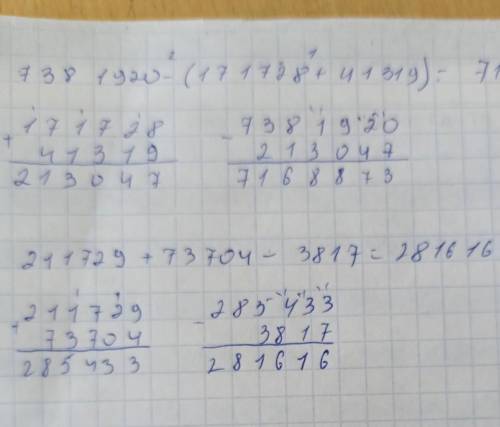 7381920 - (171728 + 41319) = 71
171728 7381920
+ 41319 - 213047
213047 7168873
211729 + 73704 - 3817 = 281616
211729 285433
+ 73704 - 3817
285433 281616